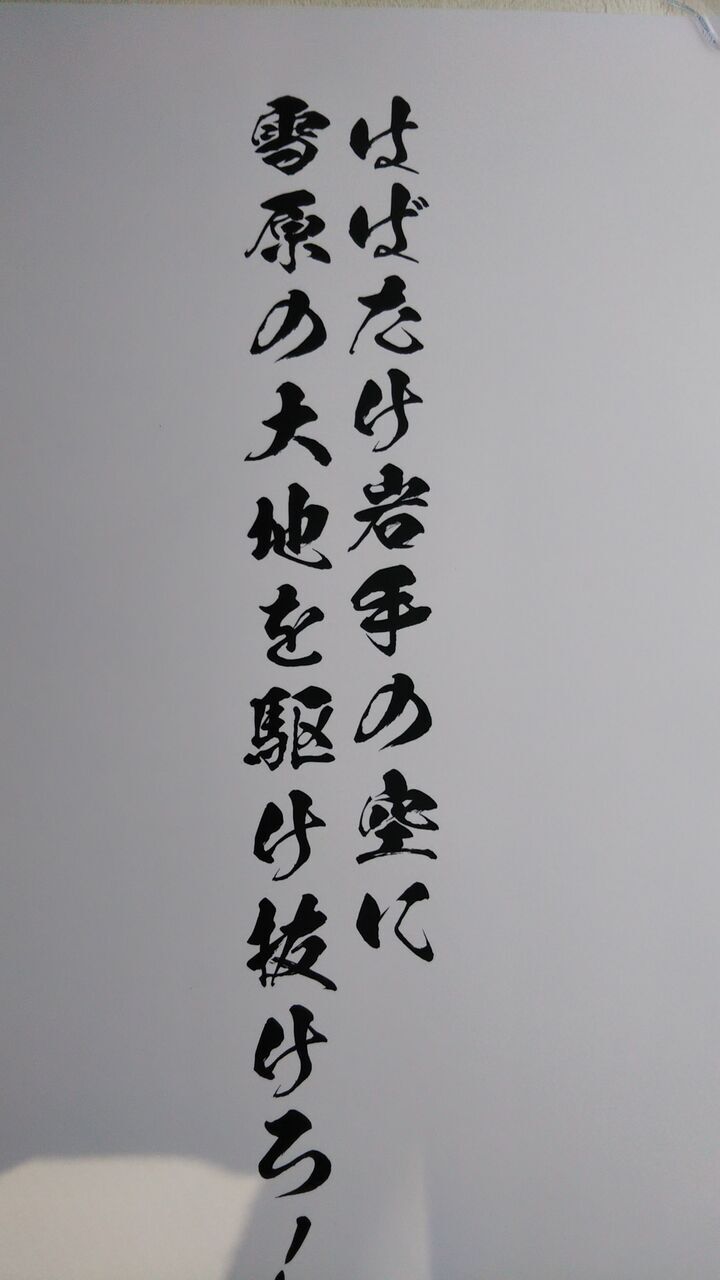 はばたけ岩手の空に
雪原の大地を駆け抜けろ！